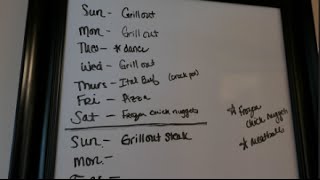 Sun - Grill out
Mon - Grill out
Tues - * dance
Wed - Grill out
Thurs - Ital Beef (crock pot)
Fri - Pizza
Sat - Frozen chick nuggets
Sun - Grill out steak
Mon -
* frozen
chick nuggets
* meatballs